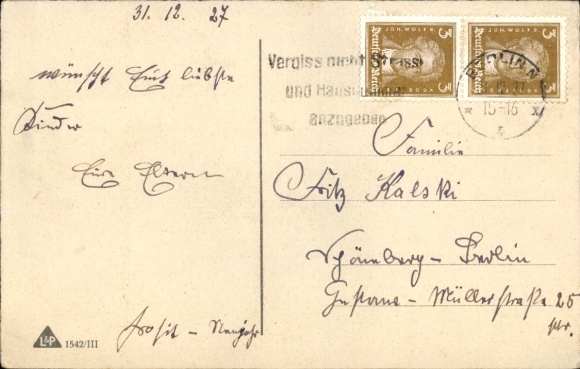 31. 12. 27
wünscht Euch liebste
Kinder
Eure Eltern
Prosit - Neujahr
L&P
1542/III
Vergiss nicht Strasse
und Hausnummer
anzugeben
3
JOH. WOLFG.
Deutsches Reich
3
JOH. WOLFG.
Deutsches Reich
BERLIN N
15-16
Familie
Fritz Kalski
Schöneberg - Berlin
Gustav - Müllerstraße 25